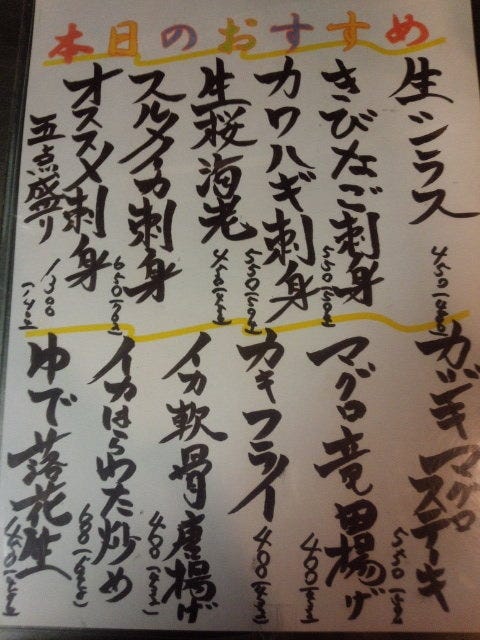 本日のおすすめ
生シラス 450
きびなご刺身 550
カワハギ刺身 550
生桜海老 450
スルメイカ刺身 650
オススメ刺身
五点盛り 1300
カジキマグロステーキ 550
マグロ竜田揚げ 400
カキフライ 400
イカ軟骨唐揚げ 400
イカはらわた炒め
ゆで落花生